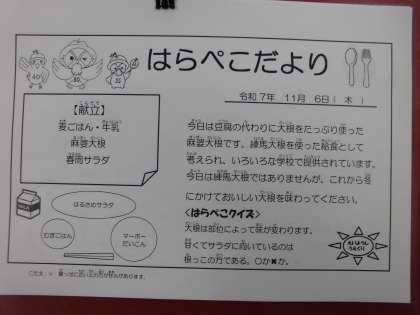 はらぺこだより
令和7年 11月 6日( 木 )
【献立】
麦ごはん・牛乳
麻婆大根
春雨サラダ
今日は豆腐の代わりに大根をたっぷり使った
麻婆大根です。練馬大根を使った給食として
考えられ、いろいろな学校で提供されています。
今日は練馬大根ではありませんが、これから冬
にかけておいしい大根を味わってください。
<はらぺこクイズ>
大根は部位によって味が変わります。
甘くてサラダに向いているのは
根っこの方である。○か✖か。
はるさめサラダ
むぎごはん
マーボー
だいこん